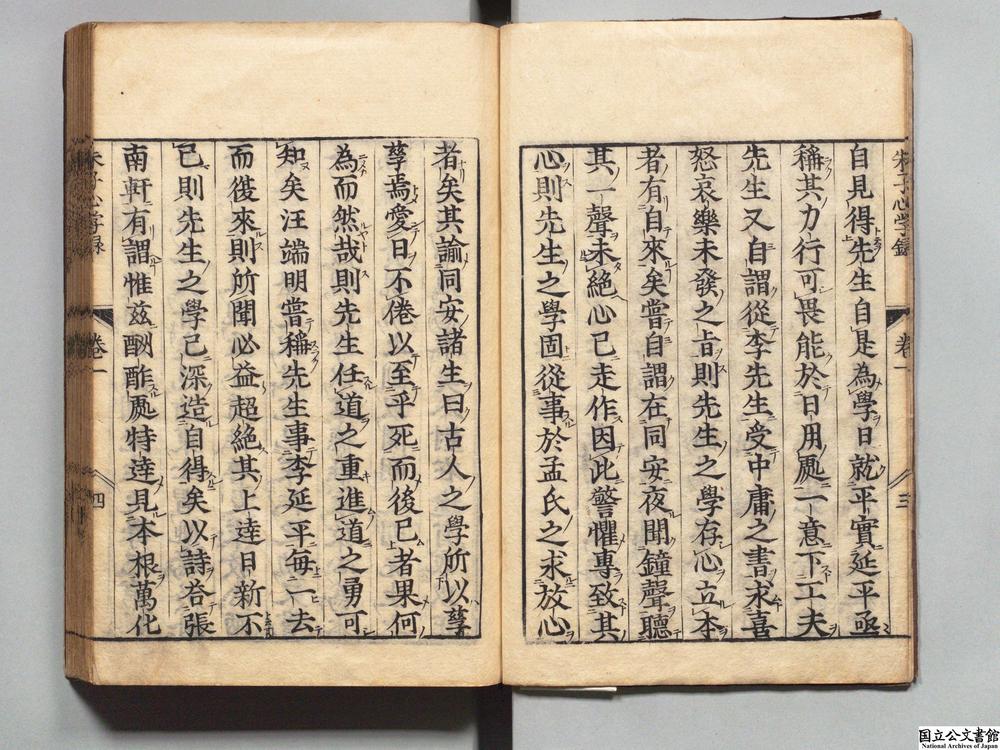 朱子心学録 卷一 三
自見得先生自是為學日就平實延平亟
稱其力行可畏能於日用處一意下工夫
先生又自謂從李先生受中庸之書求喜
怒哀樂未發之旨則先生之學存心立本
者有自來矣嘗自謂在同安夜聞鐘聲聽
其一聲未絕心已走作因此警懼專致其
心則先生之學固從事於孟氏之求放心
者矣其諭同安諸生曰古人之學所以孳
孳焉愛日不倦以至乎死而後已者果何
為而然哉則先生任道之重進道之勇可
知矣汪端明嘗稱先生事李延平每一去
而復來則所聞必益超絕其上達日新不
已則先生之學已深造自得矣以詩答張
南軒有謂惟茲酬酢處特達見本根萬化
朱子心学録 卷一 四
国立公文書館
National Archives of Japan